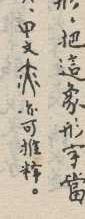 形，把這象形字當
、甲文亦可推釋。